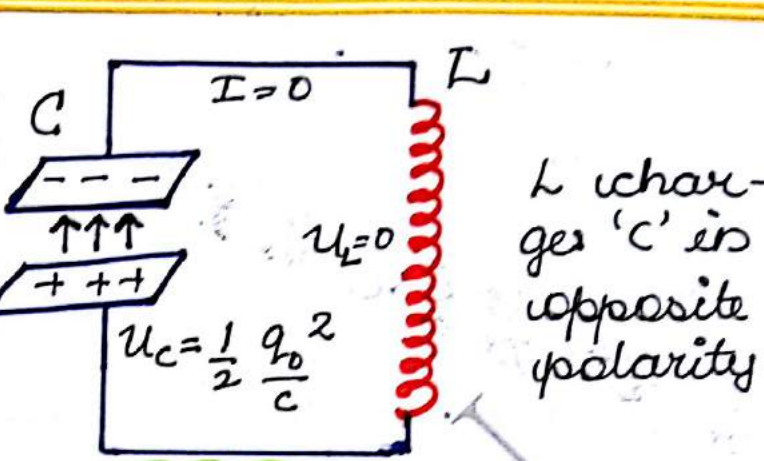 I=0
L
C
- - -
+ + +
U_L=0
U_C = 1/2 q_0^2/c
L char-
ges 'C' in
opposite
polarity